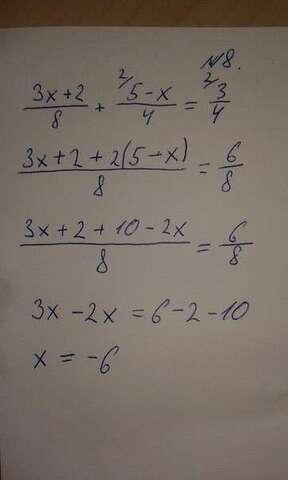 №8.
(3x+2)/8 + ²/(5-x)/4 = ²/3/4
(3x+2+2(5-x))/8 = 6/8
(3x+2+10-2x)/8 = 6/8
3x-2x=6-2-10
x=-6